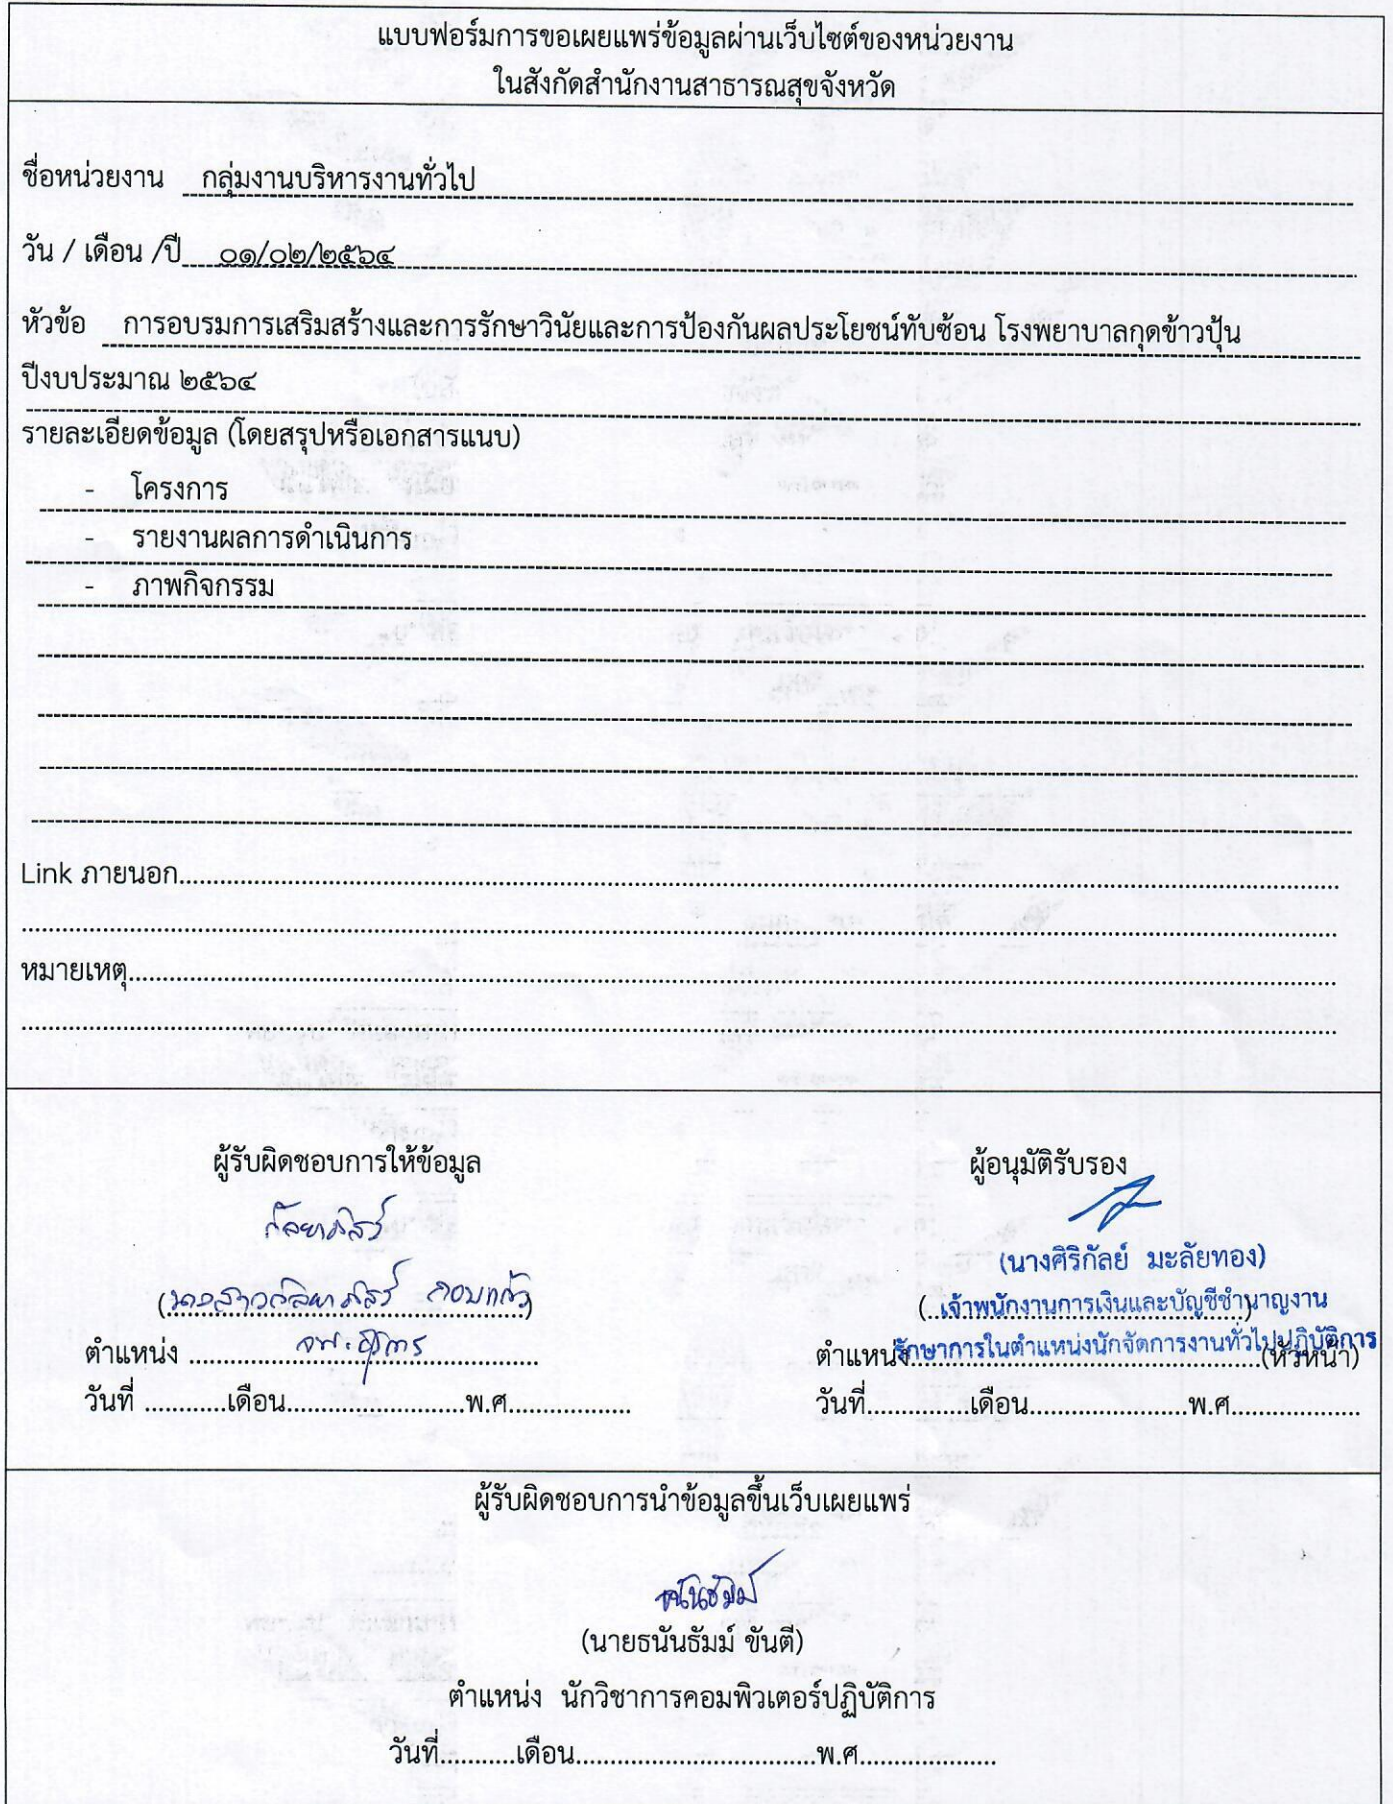 แบบฟอร์มการขอเผยแพร่ข้อมูลผ่านเว็บไซต์ของหน่วยงาน
ในสังกัดสำนักงานสาธารณสุขจังหวัด
ชื่อหน่วยงาน กลุ่มงานบริหารงานทั่วไป
วัน / เดือน /ปี ๐๑/๐๒/๒๕๖๔
หัวข้อ การอบรมการเสริมสร้างและการรักษาวินัยและการป้องกันผลประโยชน์ทับซ้อน โรงพยาบาลกุดข้าวปุ้น
ปีงบประมาณ ๒๕๖๔
รายละเอียดข้อมูล (โดยสรุปหรือเอกสารแนบ)
- โครงการ
- รายงานผลการดำเนินการ
- ภาพกิจกรรม
Link ภายนอก
หมายเหตุ
ผู้รับผิดชอบการให้ข้อมูล
กัลยาภัสร์
(นางสาวกัลยาภัสร์ กอบแก้ว)
ตำแหน่ง จพ.ธุรการ
วันที่ ............เดือน...........................พ.ศ..................
ผู้อนุมัติรับรอง
(นางศิริกัลย์ มะลัยทอง)
(เจ้าพนักงานการเงินและบัญชีชำนาญงาน)
ตำแหน่ง รักษาการในตำแหน่งนักจัดการงานทั่วไปปฏิบัติการ (หัวหน้า)
วันที่...............เดือน.......................พ.ศ...................
ผู้รับผิดชอบการนำข้อมูลขึ้นเว็บเผยแพร่
ธนันธัมม์
(นายธนันธัมม์ ขันตี)
ตำแหน่ง นักวิชาการคอมพิวเตอร์ปฏิบัติการ
วันที่...........เดือน...................................พ.ศ....................